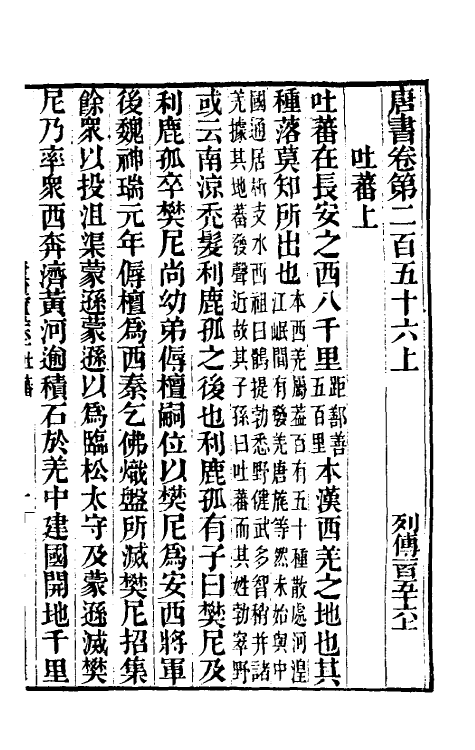 唐書卷第二百五十六上　列傳一百五十六上
吐蕃上
吐蕃在長安之西八千里距鄯善五百里本漢西羌之地也其
種落莫知所出也本西羌屬蓋百有五十種散處河湟江岷間有發羌唐旄等然未始與中
國通居析支水西祖曰鶻提勃悉野健武多智稍并諸羌據其地蕃發聲近故其子孫曰吐蕃而其姓勃窣野
或云南涼禿髮利鹿孤之後也利鹿孤有子曰樊尼及
利鹿孤卒樊尼尚幼弟傉檀嗣位以樊尼爲安西將軍
後魏神瑞元年傉檀爲西秦乞佛熾盤所滅樊尼招集
餘衆以投沮渠蒙遜蒙遜以爲臨松太守及蒙遜滅樊
尼乃率衆西奔濟黃河逾積石於羌中建國開地千里